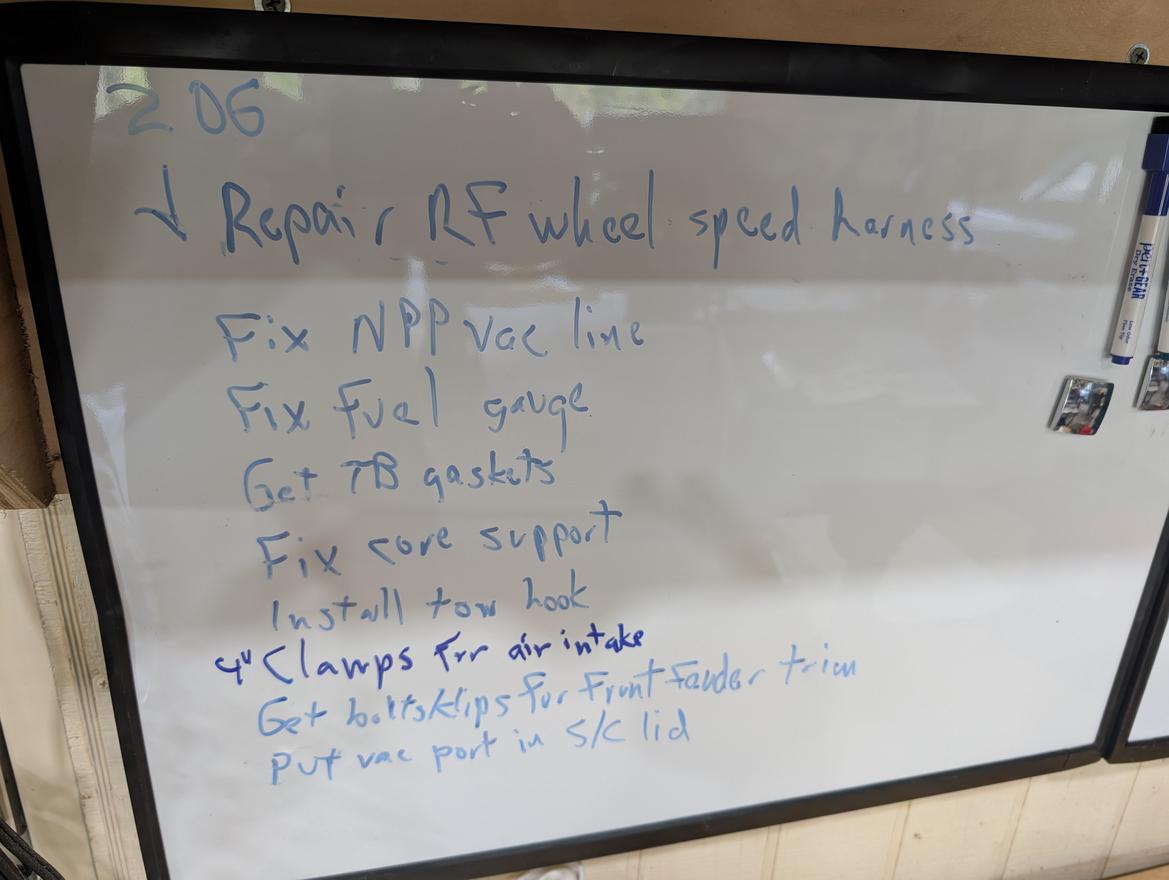 2.06
Repair RF wheel speed harness
Fix NPP vac line
Fix fuel gauge
Get TB gaskets
Fix core support
Install tow hook
4" Clamps for air intake
Get bolts&clips for Front Fender trim
Put vac port in S/C lid
DRY ERASE